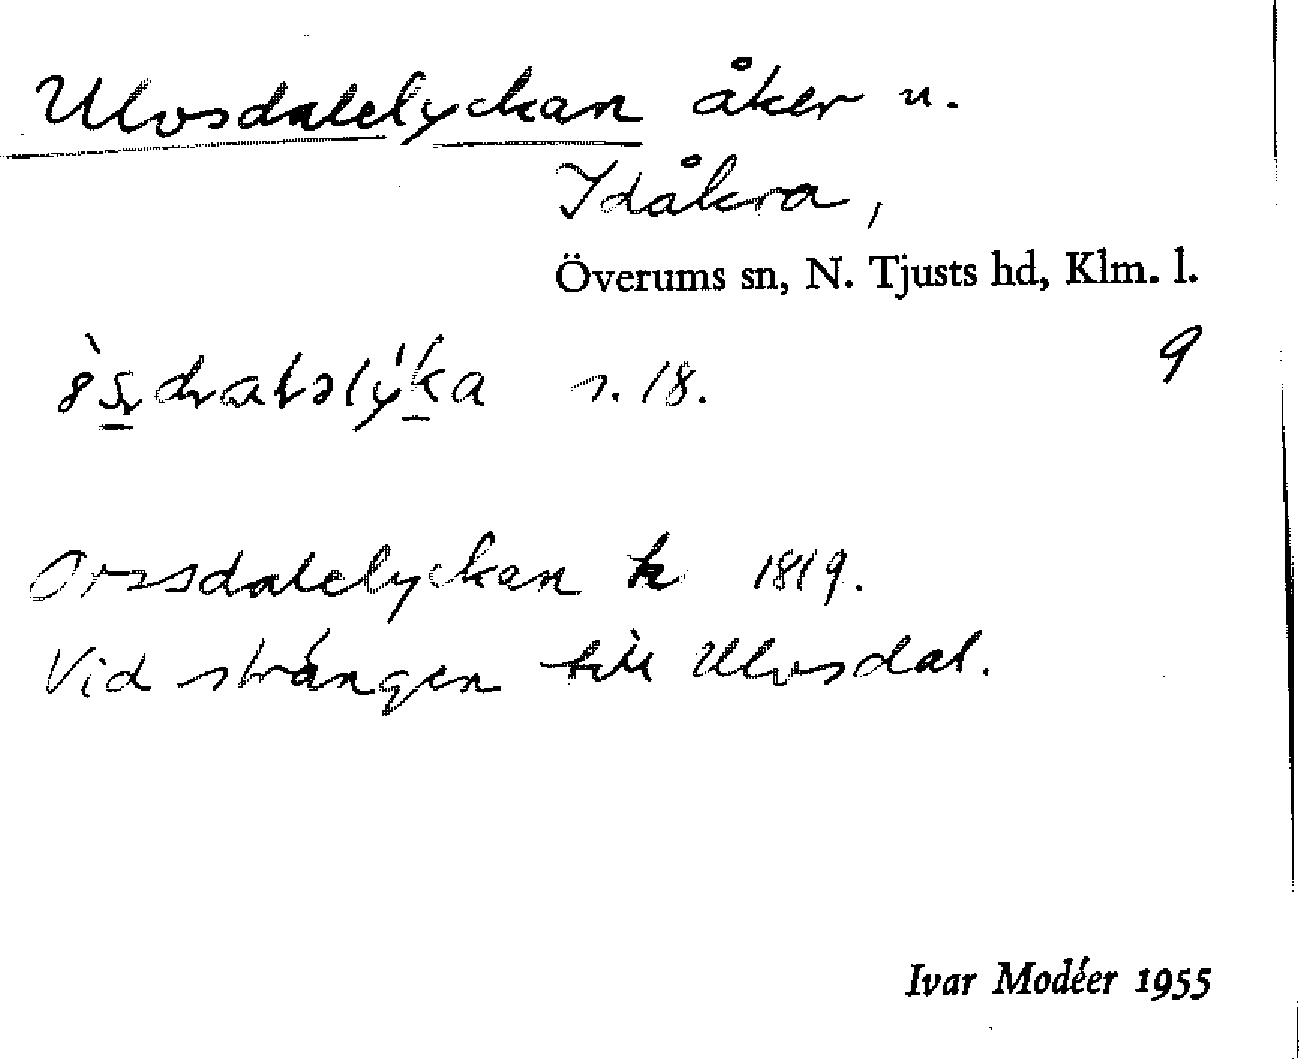 Ulvsdalelyckan åker u.
Idåkra,
Överums sn, N. Tjusts hd, Klm. l.
9
s. 18.
Orssdalelyckan k 1819.
Vid stängen till Ulvsdal.
Ivar Modéer 1955